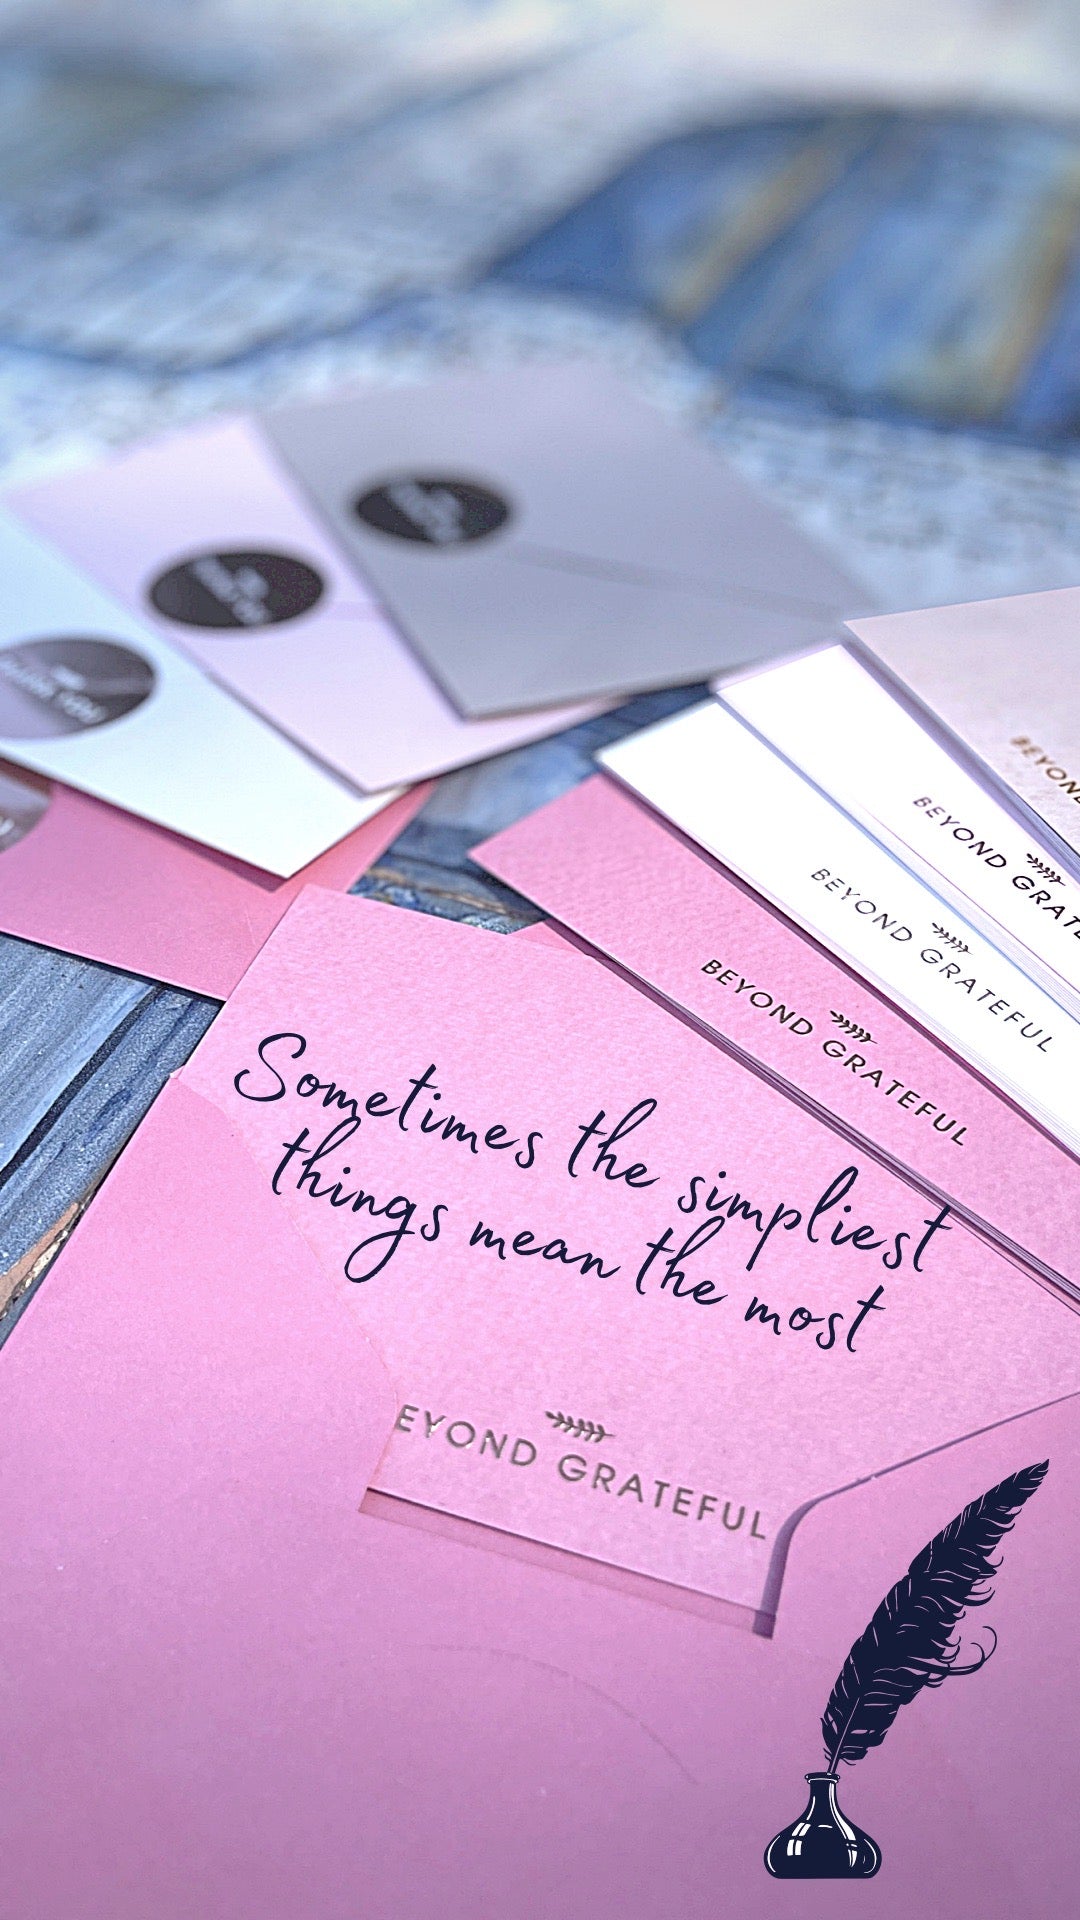 BEYOND
BEYOND GRATE
BEYOND GRATEFUL
BEYOND GRATEFUL
Sometimes the simpliest
things mean the most
EYOND GRATEFUL